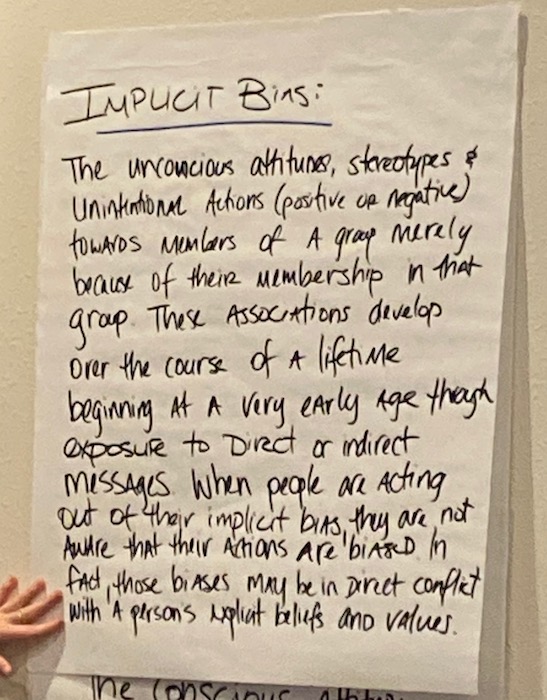 IMPLICIT BIAS:
The unconscious attitudes, stereotypes &
Unintentional Actions (positive or negative)
towards members of A group merely
because of their membership in that
group. These Associations develop
over the course of A lifetime
beginning At A very early Age though
exposure to Direct or indirect
messages. When people are Acting
out of their implicit bias, they are not
Aware that their Actions are biased. In
fact, those biases may be in Direct conflict
with A persons explicit beliefs and values.
The Conscious